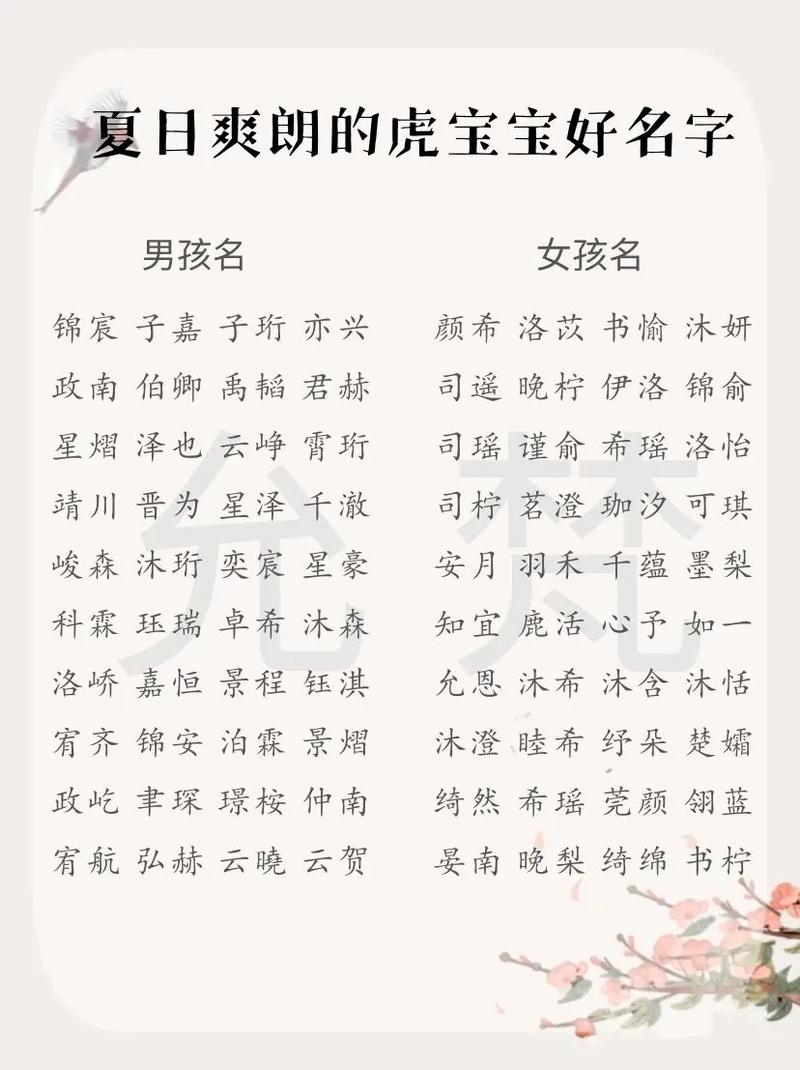 夏日爽朗的虎宝宝好名字
男孩名
锦宸 子嘉 子珩 亦兴
政南 伯卿 禹韬 君赫
星熠 泽也 云峥 霄珩
靖川 晋为 星泽 千澈
峻森 沐珩 奕宸 星豪
科霖 珏瑞 卓希 沐森
洛峤 嘉恒 景程 钰淇
宥齐 锦安 泊霖 景熠
政屹 聿琛 璟桉 仲南
宥航 弘赫 云曉 云贺
女孩名
颜希 洛苡 书愉 沐妍
司遥 晚柠 伊洛 锦俞
司瑶 谨俞 希瑶 洛怡
司柠 茗澄 珈汐 可琪
安月 羽禾 千蕴 墨梨
知宜 鹿活 心予 如一
允恩 沐希 沐含 沐恬
沐澄 睦希 纾朵 楚孀
绮然 希瑶 莞颜 翎蓝
晏南 晚梨 绮绵 书柠
允梵